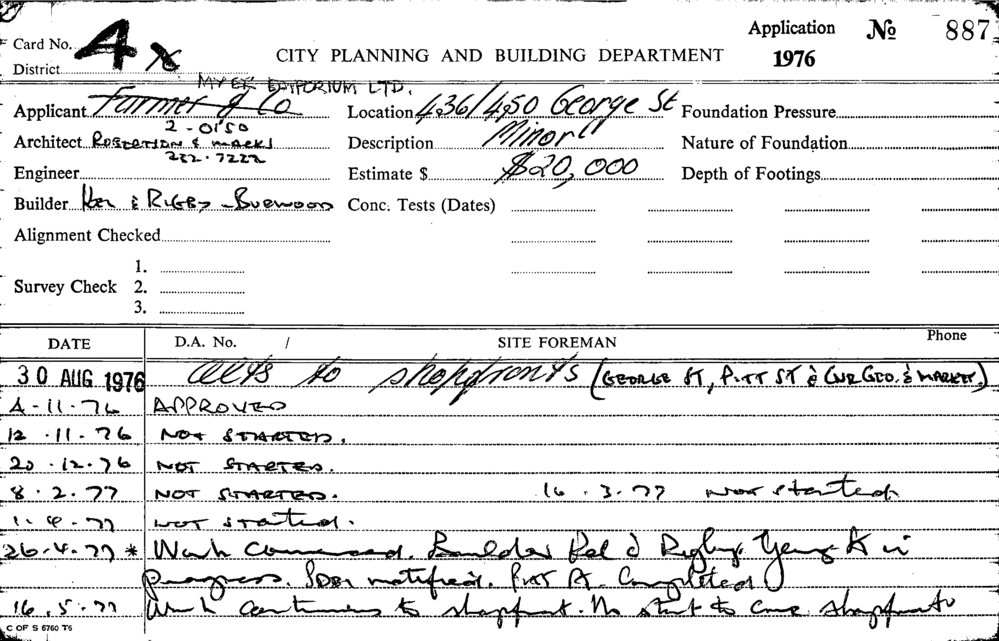 Application No 887
Card No. 4
District
CITY PLANNING AND BUILDING DEPARTMENT
1976
MYER EMPORIUM LTD.
Applicant Farmer & Co
Location 436/450 George St
Foundation Pressure
2-0150
Architect ROBERTSON & MARKS
Description Minor
Nature of Foundation
232.7222
Engineer
Estimate $ $20,000
Depth of Footings
Builder & RIGBY - BURWOOD
Conc. Tests (Dates)
Alignment Checked
1.
Survey Check 2.
3.
DATE D.A. No. / SITE FOREMAN Phone
30 AUG 1976 Alts to shopfronts (GEORGE ST, PITT ST & CNR GEO. & MARKET)
4-11-76 APPROVED
12.11.76 NOT STARTED.
20.12.76 NOT STARTED.
8.2.77 NOT STARTED. 16.3.77 Not started
1.4.77 NOT started.
26.4.77 * Work Commenced. Builder & Rigby. George St in
progress. notified. Pitt St. Completed
16.5.77 Work continues to shopfront. No start to shopfronts
C OF S 6760 T6